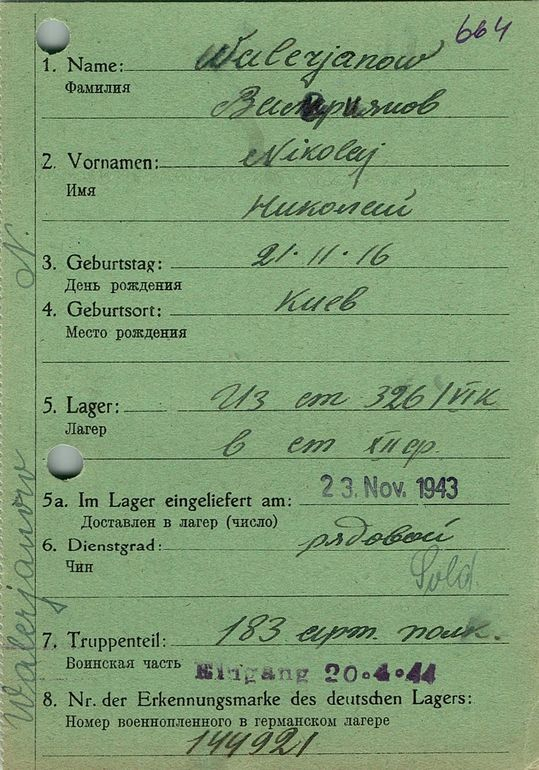 664
1. Name: Walerjanow
Фамилия
Валириянов
2. Vornamen: Nikolaj
Имя
Николай
3. Geburtstag: 21·11·16
День рождения
4. Geburtsort: Киев
Место рождения
5. Lager: Из ст 326/VIК
Лагер
в ст XII ф.
5a. Im Lager eingeliefert am: 23. Nov. 1943
Доставлен в лагер (число)
6. Dienstgrad: рядовой
Чин
Sold.
7. Truppenteil: 183 арт. полк.
Воинская часть Eingang 20·4·44
8. Nr. der Erkennungsmarke des deutschen Lagers:
Номер военнопленного в германском лагере
144921
Walerjanow N.